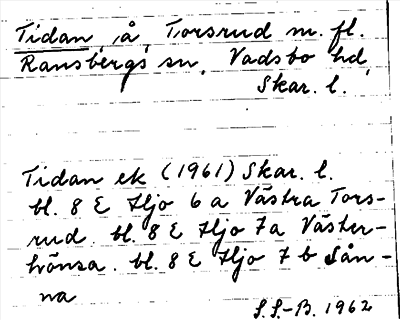 Tidan, å, Torsrud m. fl.
Ransbergs sn, Vadsbo hd,
Skar. l.
Tidan ek (1961) Skar. l.
bl. 8 E Hjo 6 a Västra Tors-
rud. bl. 8 E Hjo 7a Väster-
hönsa. bl. 8 E Hjo 7 b Sån-
na
S.S.-B. 1962